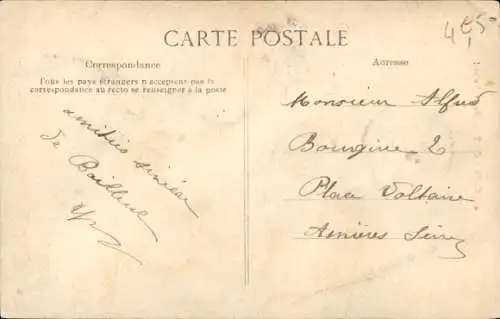 4e50
CARTE POSTALE
Correspondance
Tous les pays étrangers n'acceptent pas la
correspondance au recto se renseigner à la poste
Adresse
amitiés sincères
de Bailleul
Monsieur Alfred
Bourgine 2
Place Voltaire
Asnières Seine